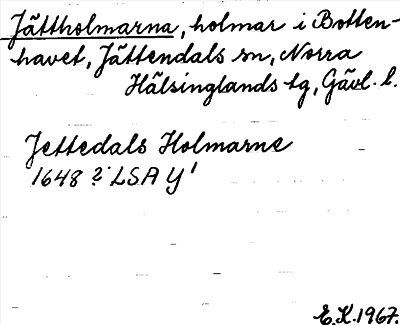 Jättholmarna, holmar i Botten-
havet, Jättendals sn, Norra
Hälsinglands tg, Gävl. l.
Jettedals Holmarne
1648 ? LSA Y 1
E.K. 1967.